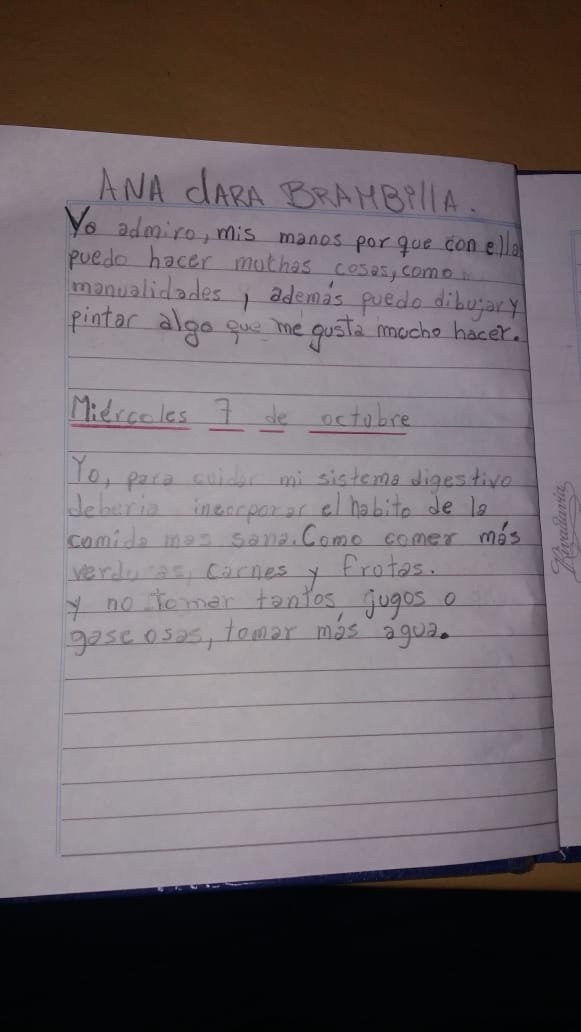 ANA CLARA BRAMBillA.
Yo admiro, mis manos por que con ella
puedo hacer muchas cosas, como
manualidades, además puedo dibujar y
pintar algo que me gusta mucho hacer.
Miércoles 7 de octubre
Yo, para cuidar mi sistema digestivo
deberia incorporar el habito de la
comida mas sana. Como comer más
verduras, carnes y frutas.
y no tomar tantos jugos o
gaseosas, tomar más agua.
Rivadavia